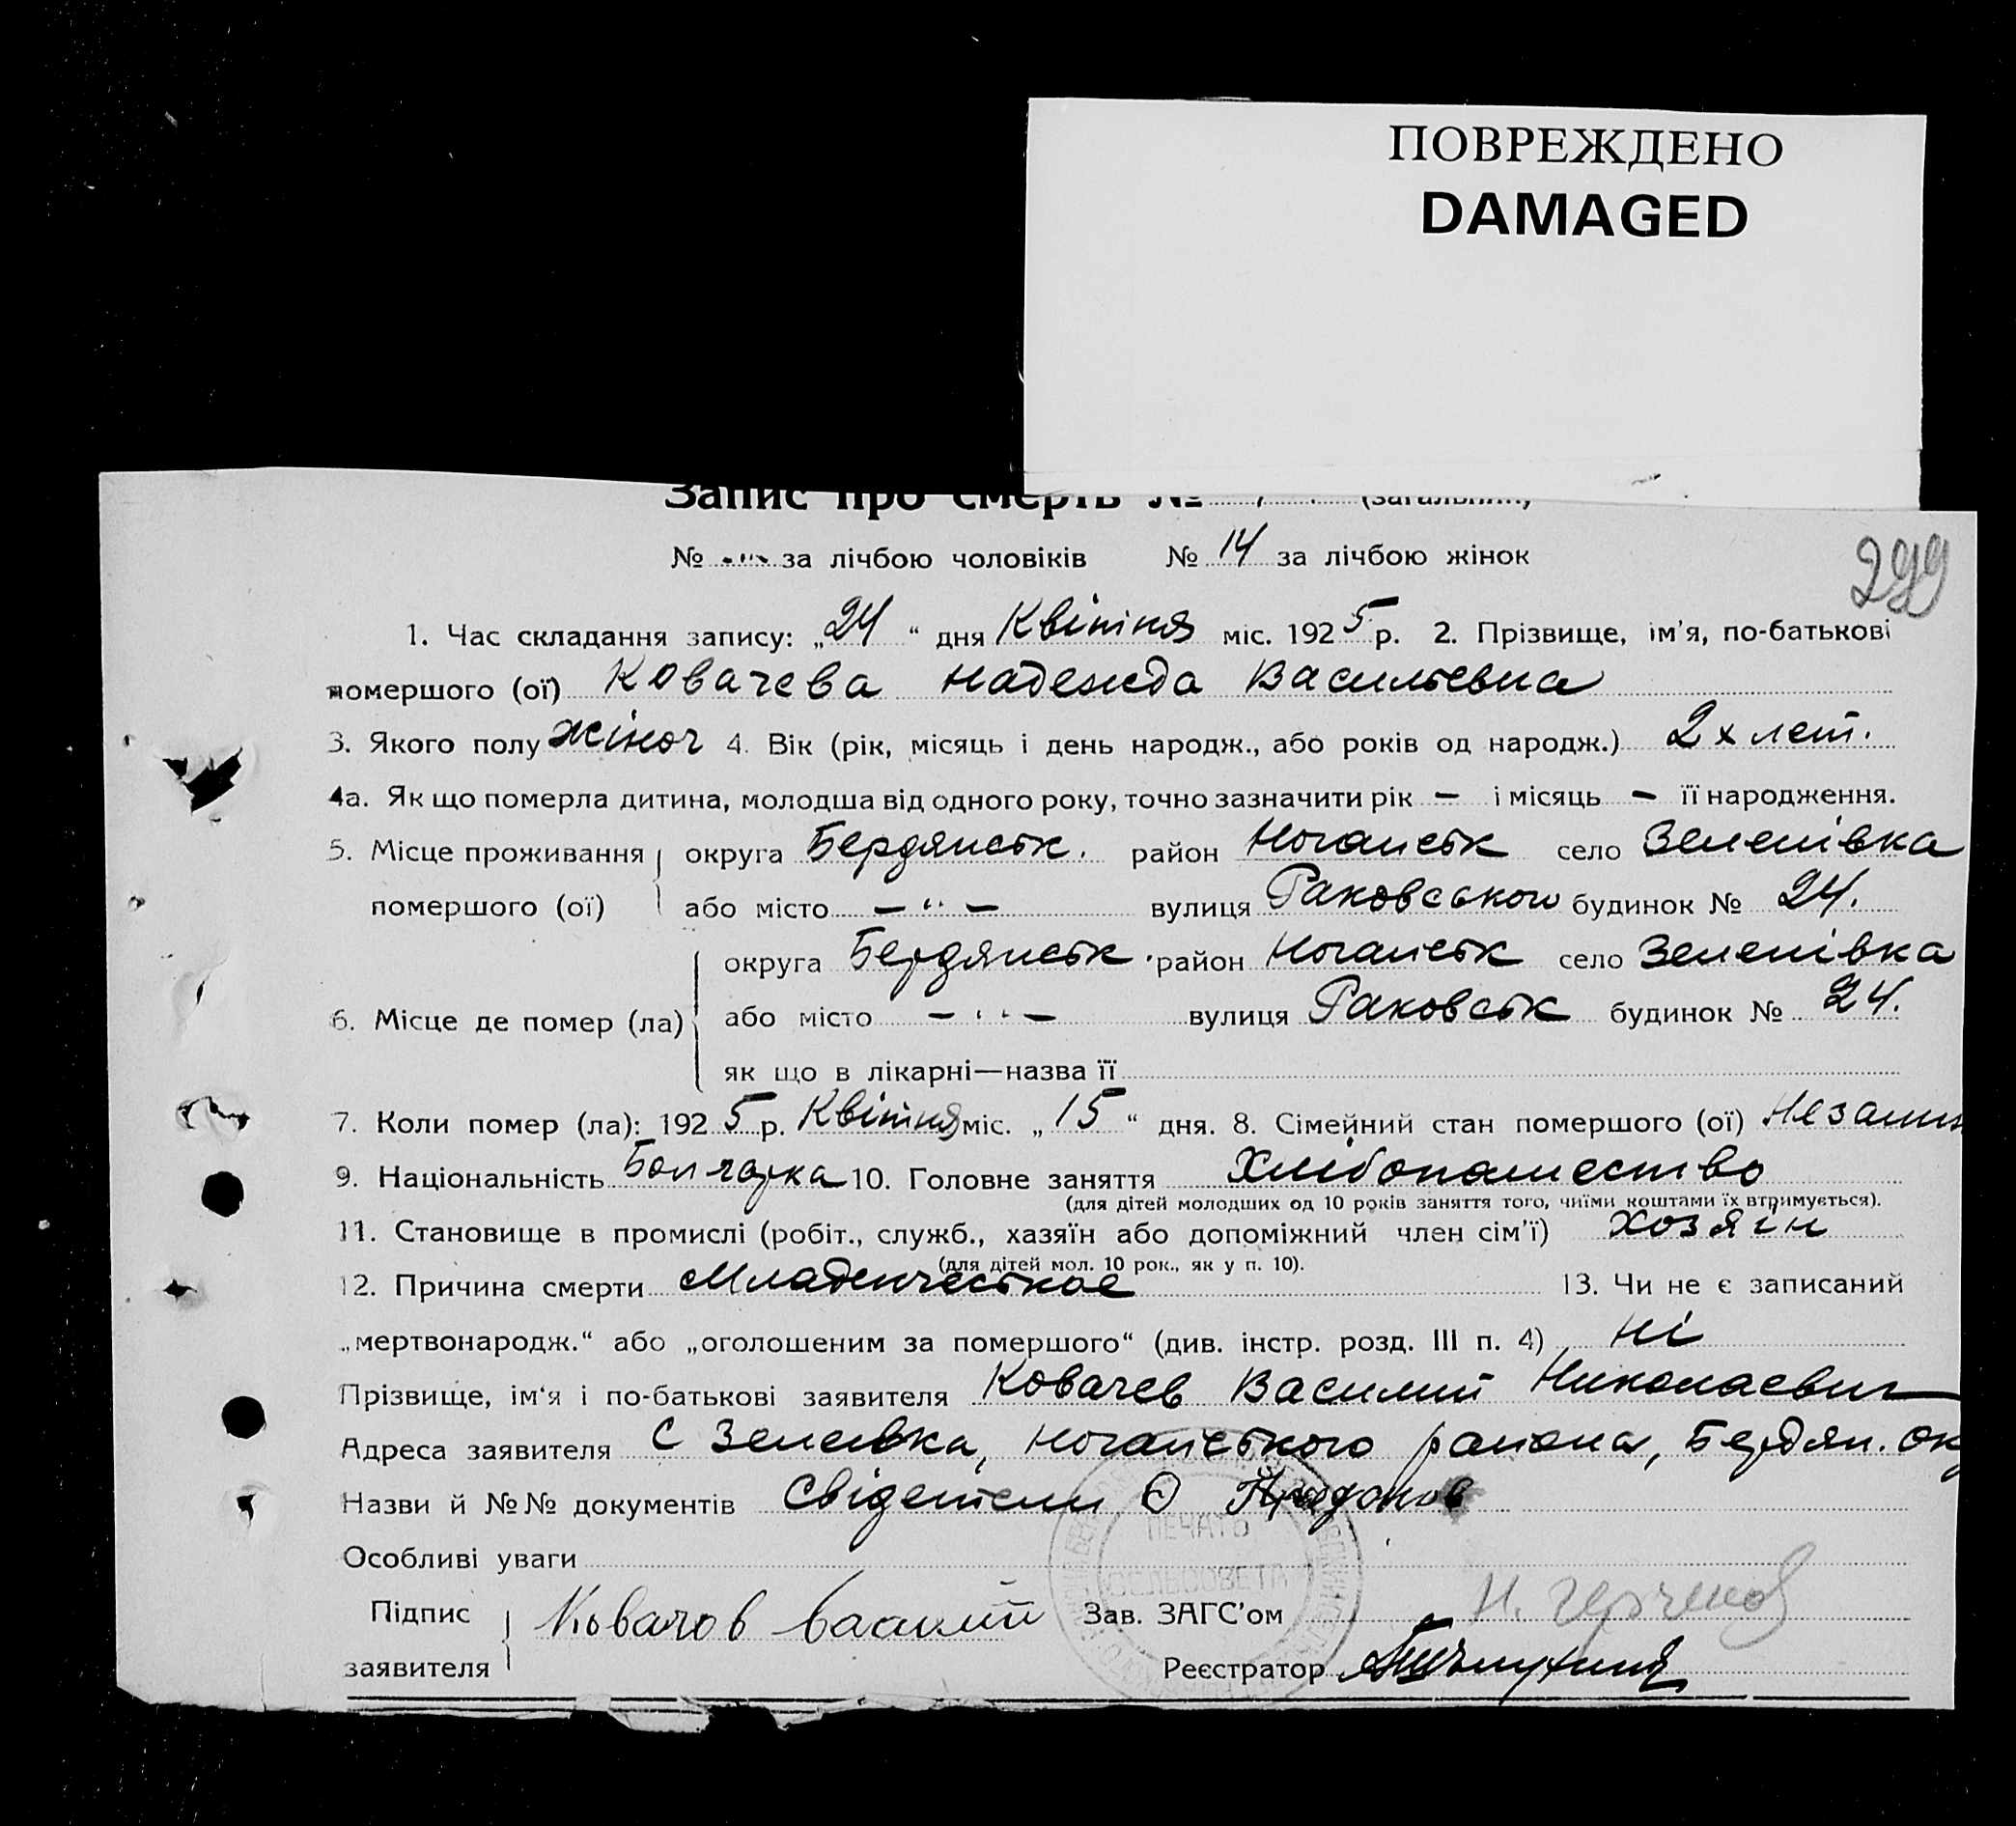 ПОВРЕЖДЕНО
DAMAGED
Запис про смерть № (загальний)
299
№ -"- за лічбою чоловіків № 14 за лічбою жінок
1. Час складання запису: „24“ дня Квітня міс. 1925 р. 2. Прізвище, ім'я, по-батькові
помершого (ої) Ковачева Надежда Васильевна
3. Якого полу жіноч 4. Вік (рік, місяць і день народж., або років од народж.) 2х лет.
4а. Як що померла дитина, молодша від одного року, точно зазначити рік — і місяць — її народження.
5. Місце проживання округа Бердянськ. район Ногайськ село Зеленівка
помершого (ої) або місто —"— вулиця Раковського будинок № 24.
округа Бердянськ район Ногайськ село Зеленівка
6. Місце де помер (ла) або місто —"— вулиця Раковськ будинок № 24.
як що в лікарні—назва її
7. Коли помер (ла): 1925 р. Квітня міс. „15“ дня. 8. Сімейний стан помершого (ої)
9. Національність Болгарка 10. Головне заняття Хлібопашество
(для дітей молодших од 10 років заняття того, чиїми коштами їх втримується).
11. Становище в промислі (робіт., служб., хазяїн або допоміжний член сім'ї) хозяїн
(для дітей мол. 10 рок., як у п. 10).
12. Причина смерти Младенческое 13. Чи не є записаний
„мертвонародж.“ або „оголошеним за помершого“ (див. інстр. розд. III п. 4) ні
Прізвище, ім'я і по-батькові заявителя Ковачев Василий Николаевич
Адреса заявителя С Зеленвка, Ногайського района, Бердян. ок
Назви й №№ документів Свідетели
ПЕЧАТЬ
СЕЛЬСОВЕТА
Особливі уваги
Підпис заявителя Ковачов Василий Зав. ЗАГС'ом
Реєстратор